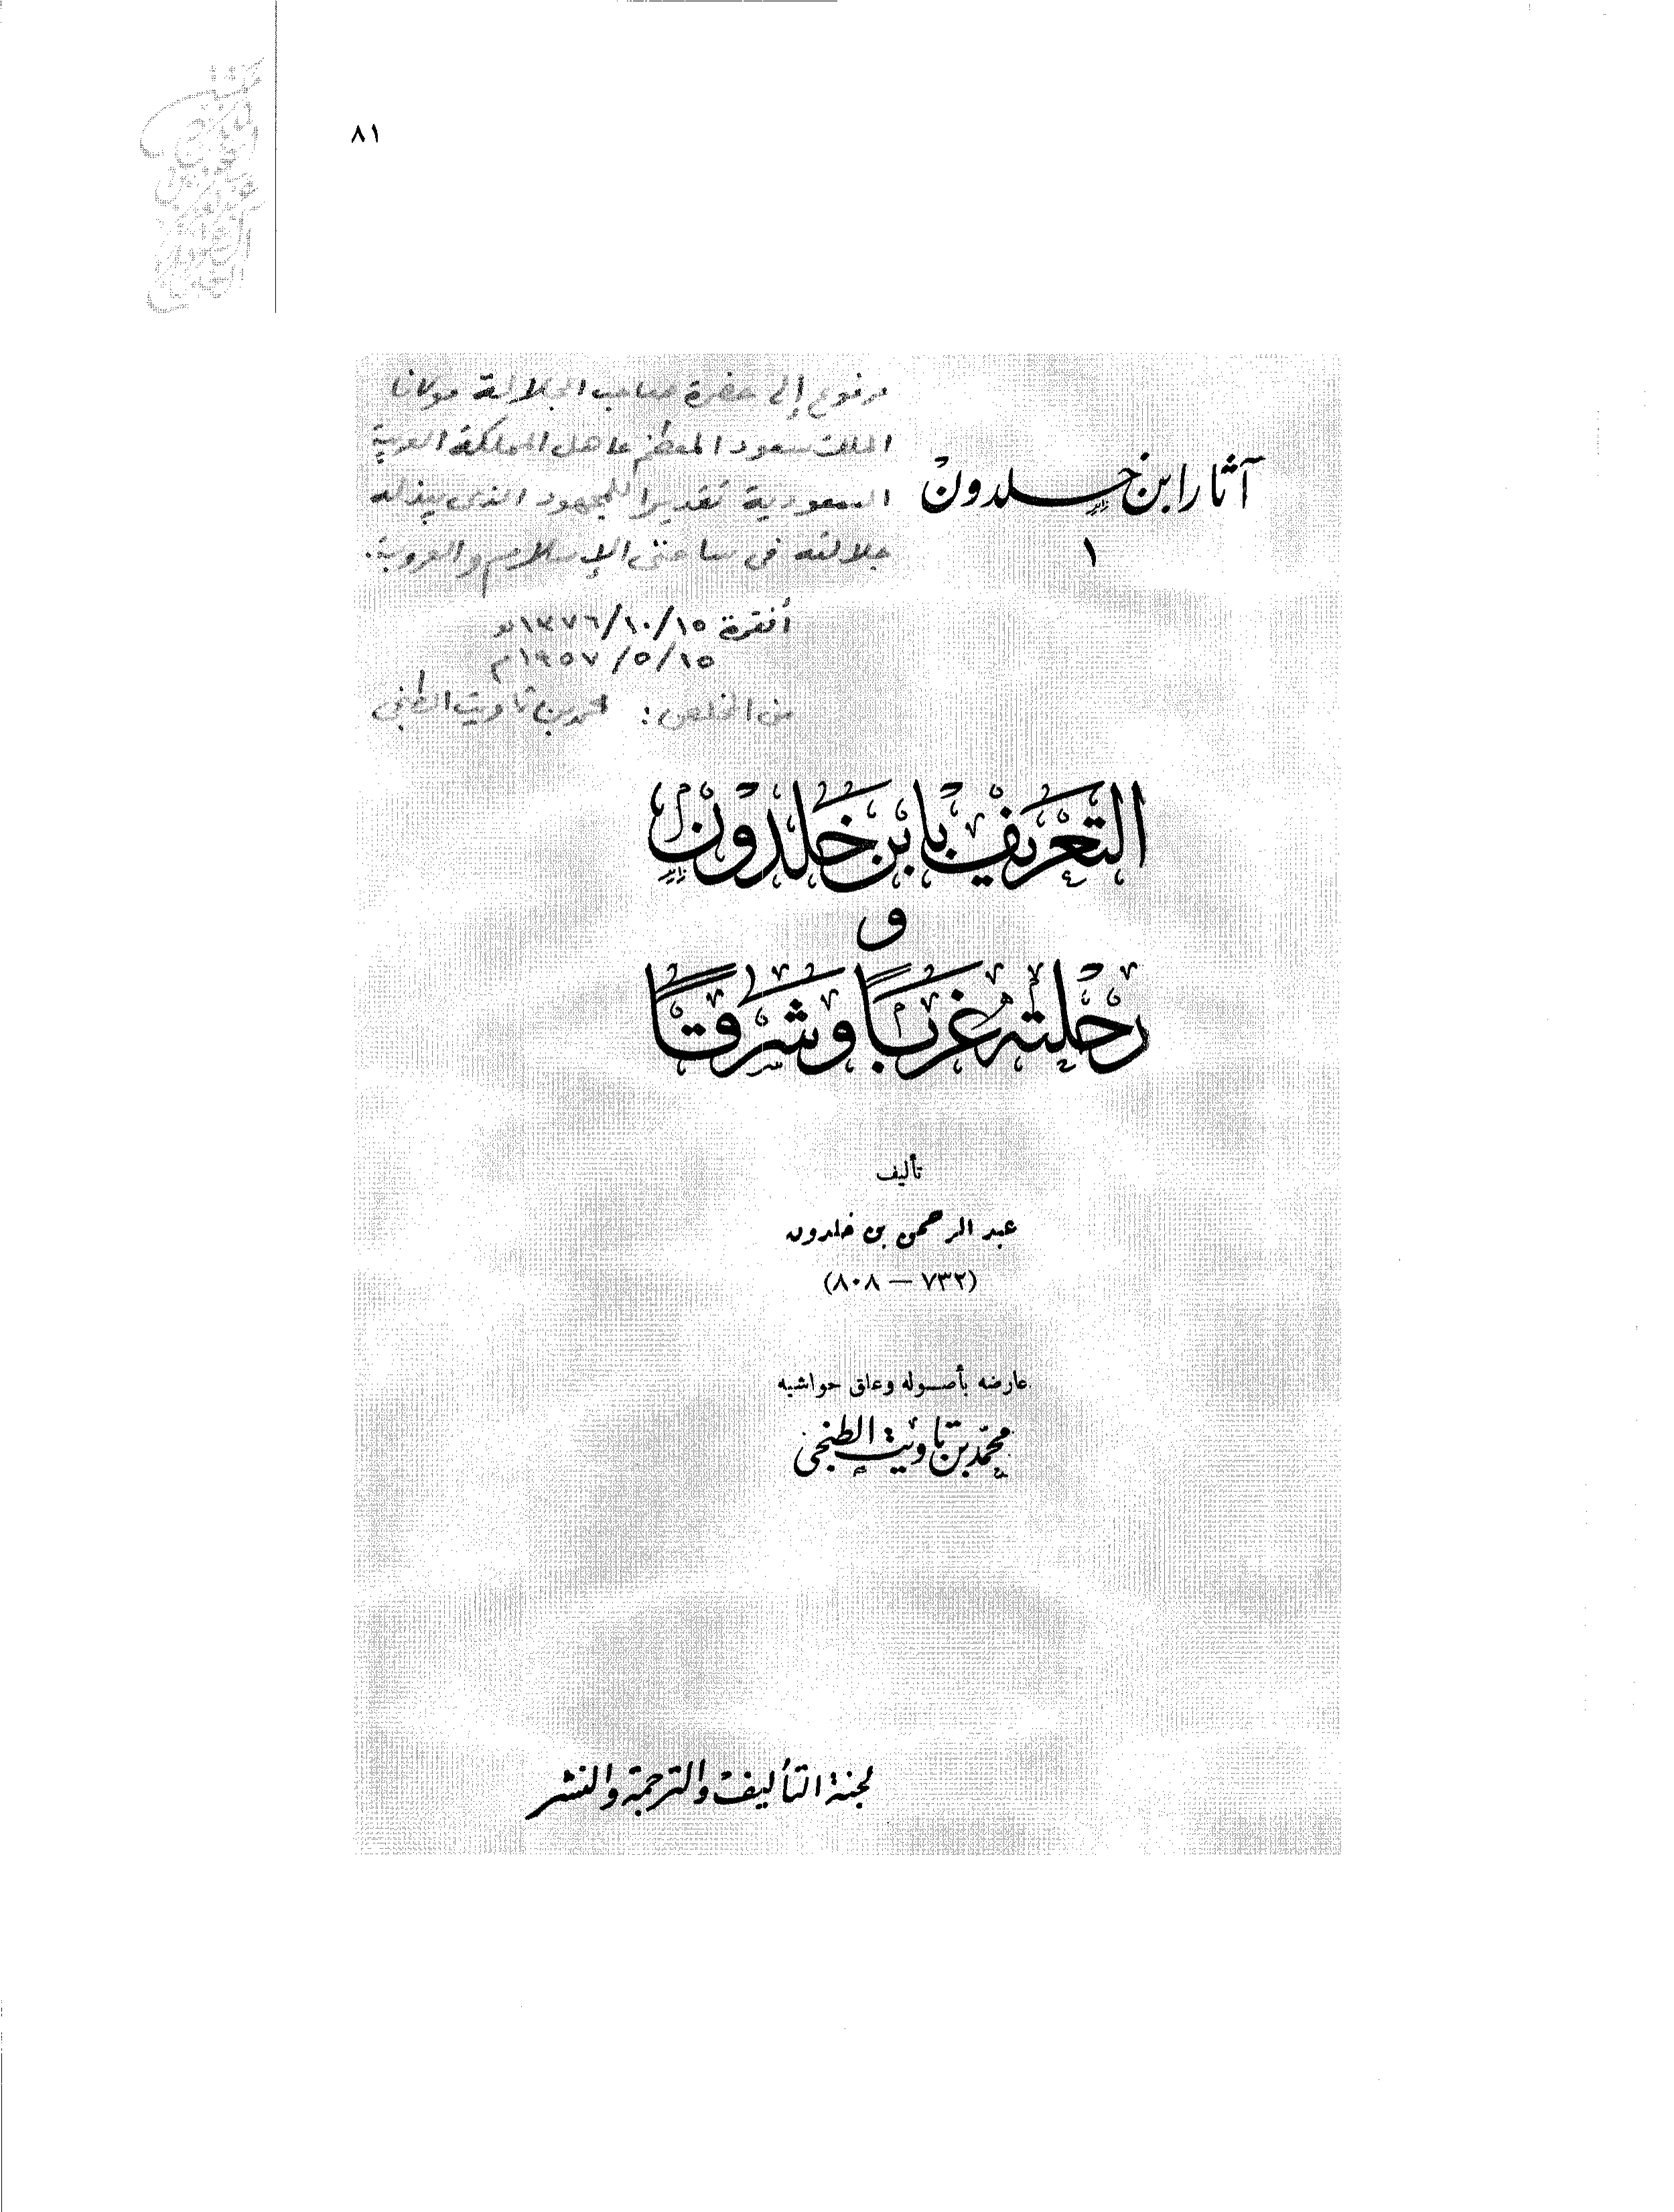 ٨١
مرفوع إلى حضرة صاحب الجلالة مولانا
الملك سعود المعظم عاهل المملكة العربية
السعودية تقديرا للمجهود الذى يبذله
جلالته فى ساحتى الإسلام والعروبة.
أنقرة ١٥/١٠/١٣٧٦هـ
١٥/٥/١٩٥٧م
من المخلص: محمد بن تاويت الطنجى
آثار ابن خلدون
١
التعريف بابن خلدون
و
رحلته غربًا وشرقًا
تأليف
عبد الرحمن بن خلدون
(٧٣٢ — ٨٠٨)
عارضه بأصوله وعلق حواشيه
محمد بن تاويت الطنجى
لجنة التأليف والترجمة والنشر